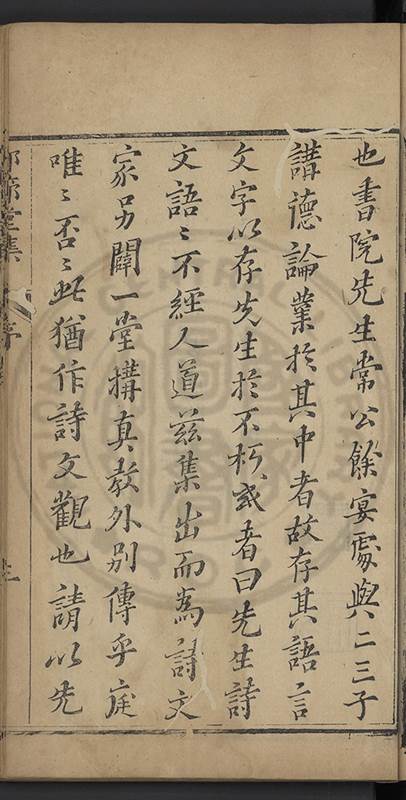 也書院先生常公餘宴處與二三子
講德論業於其中者故存其語言
文字以存先生於不朽或者曰先生詩
文語〻不經人道茲集出而為詩文
家另闢一堂搆真教外別傳乎庭
唯〻否〻此猶作詩文觀也請以先